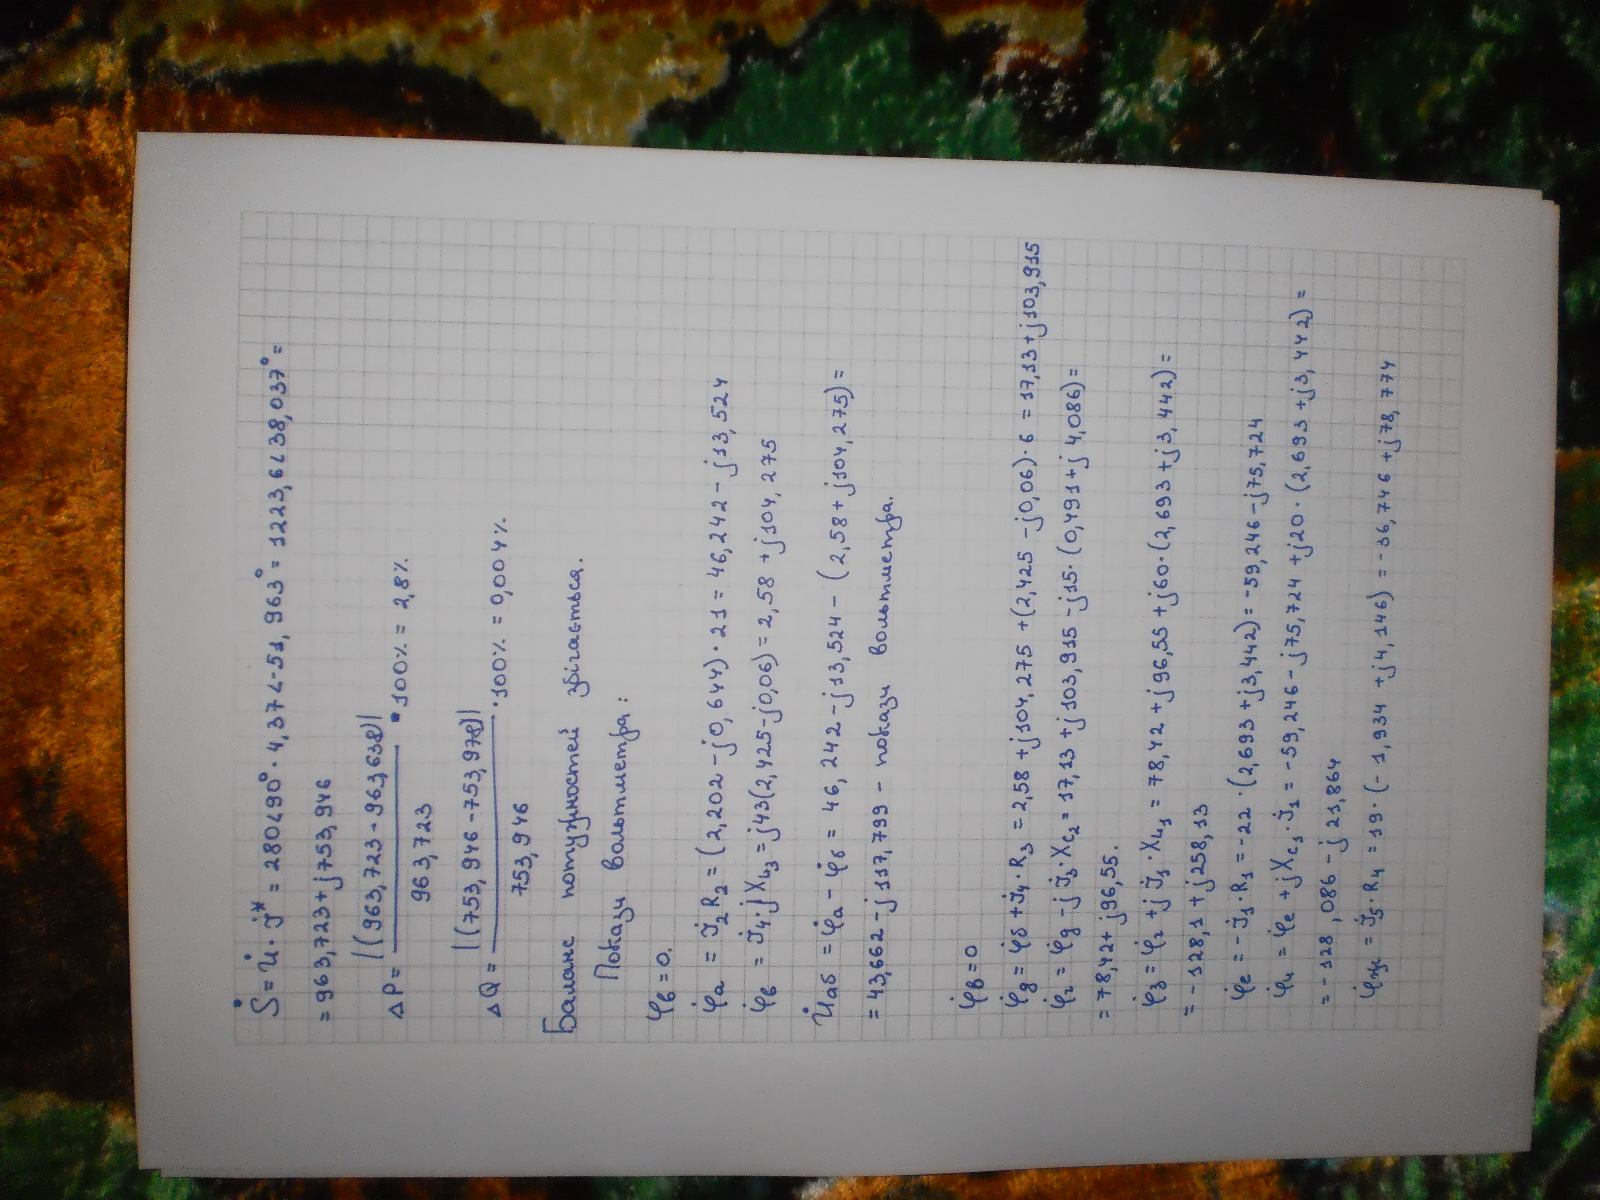 Ṡ = U̇ · J̇* = 280∠90° · 4,37∠-51,963° = 1223,6∠38,037° =
= 963,723 + j753,946
ΔP = |(963,723 - 963,638)| / 963,723 · 100% = 2,8%.
ΔQ = |(753,946 - 753,978)| / 753,946 · 100% = 0,004%.
Баланс потужностей збігається.
Покази вольтметра:
φв = 0.
φ̇а = J̇₂R₂ = (2,202 - j0,644) · 21 = 46,242 - j13,524
φ̇б = J̇₄·jX_L₃ = j43(2,425 - j0,06) = 2,58 + j104,275
U̇аб = φ̇а - φ̇б = 46,242 - j13,524 - (2,58 + j104,275) =
= 43,662 - j117,799 - покази вольтметра.
φ̇в = 0
φ̇g = φ̇б + J̇₄·R₃ = 2,58 + j104,275 + (2,425 - j0,06)·6 = 17,13 + j103,915
φ̇г = φ̇g - jJ̇₃·Xc₂ = 17,13 + j103,915 - j15·(0,491 + j4,086) =
= 78,42 + j96,55.
φ̇з = φ̇г + jJ̇₁·X_L₁ = 78,42 + j96,55 + j60·(2,693 + j3,442) =
= -128,1 + j258,13
φ̇е = -J̇₁·R₁ = -22·(2,693 + j3,442) = -59,246 - j75,724
φ̇и = φ̇е + jXc₃·J̇₁ = -59,246 - j75,724 + j20·(2,693 + j3,442) =
= -128,086 - j21,864
= J̇₅·R₄ = 19·(-1,934 + j4,146) = -36,746 + j78,774